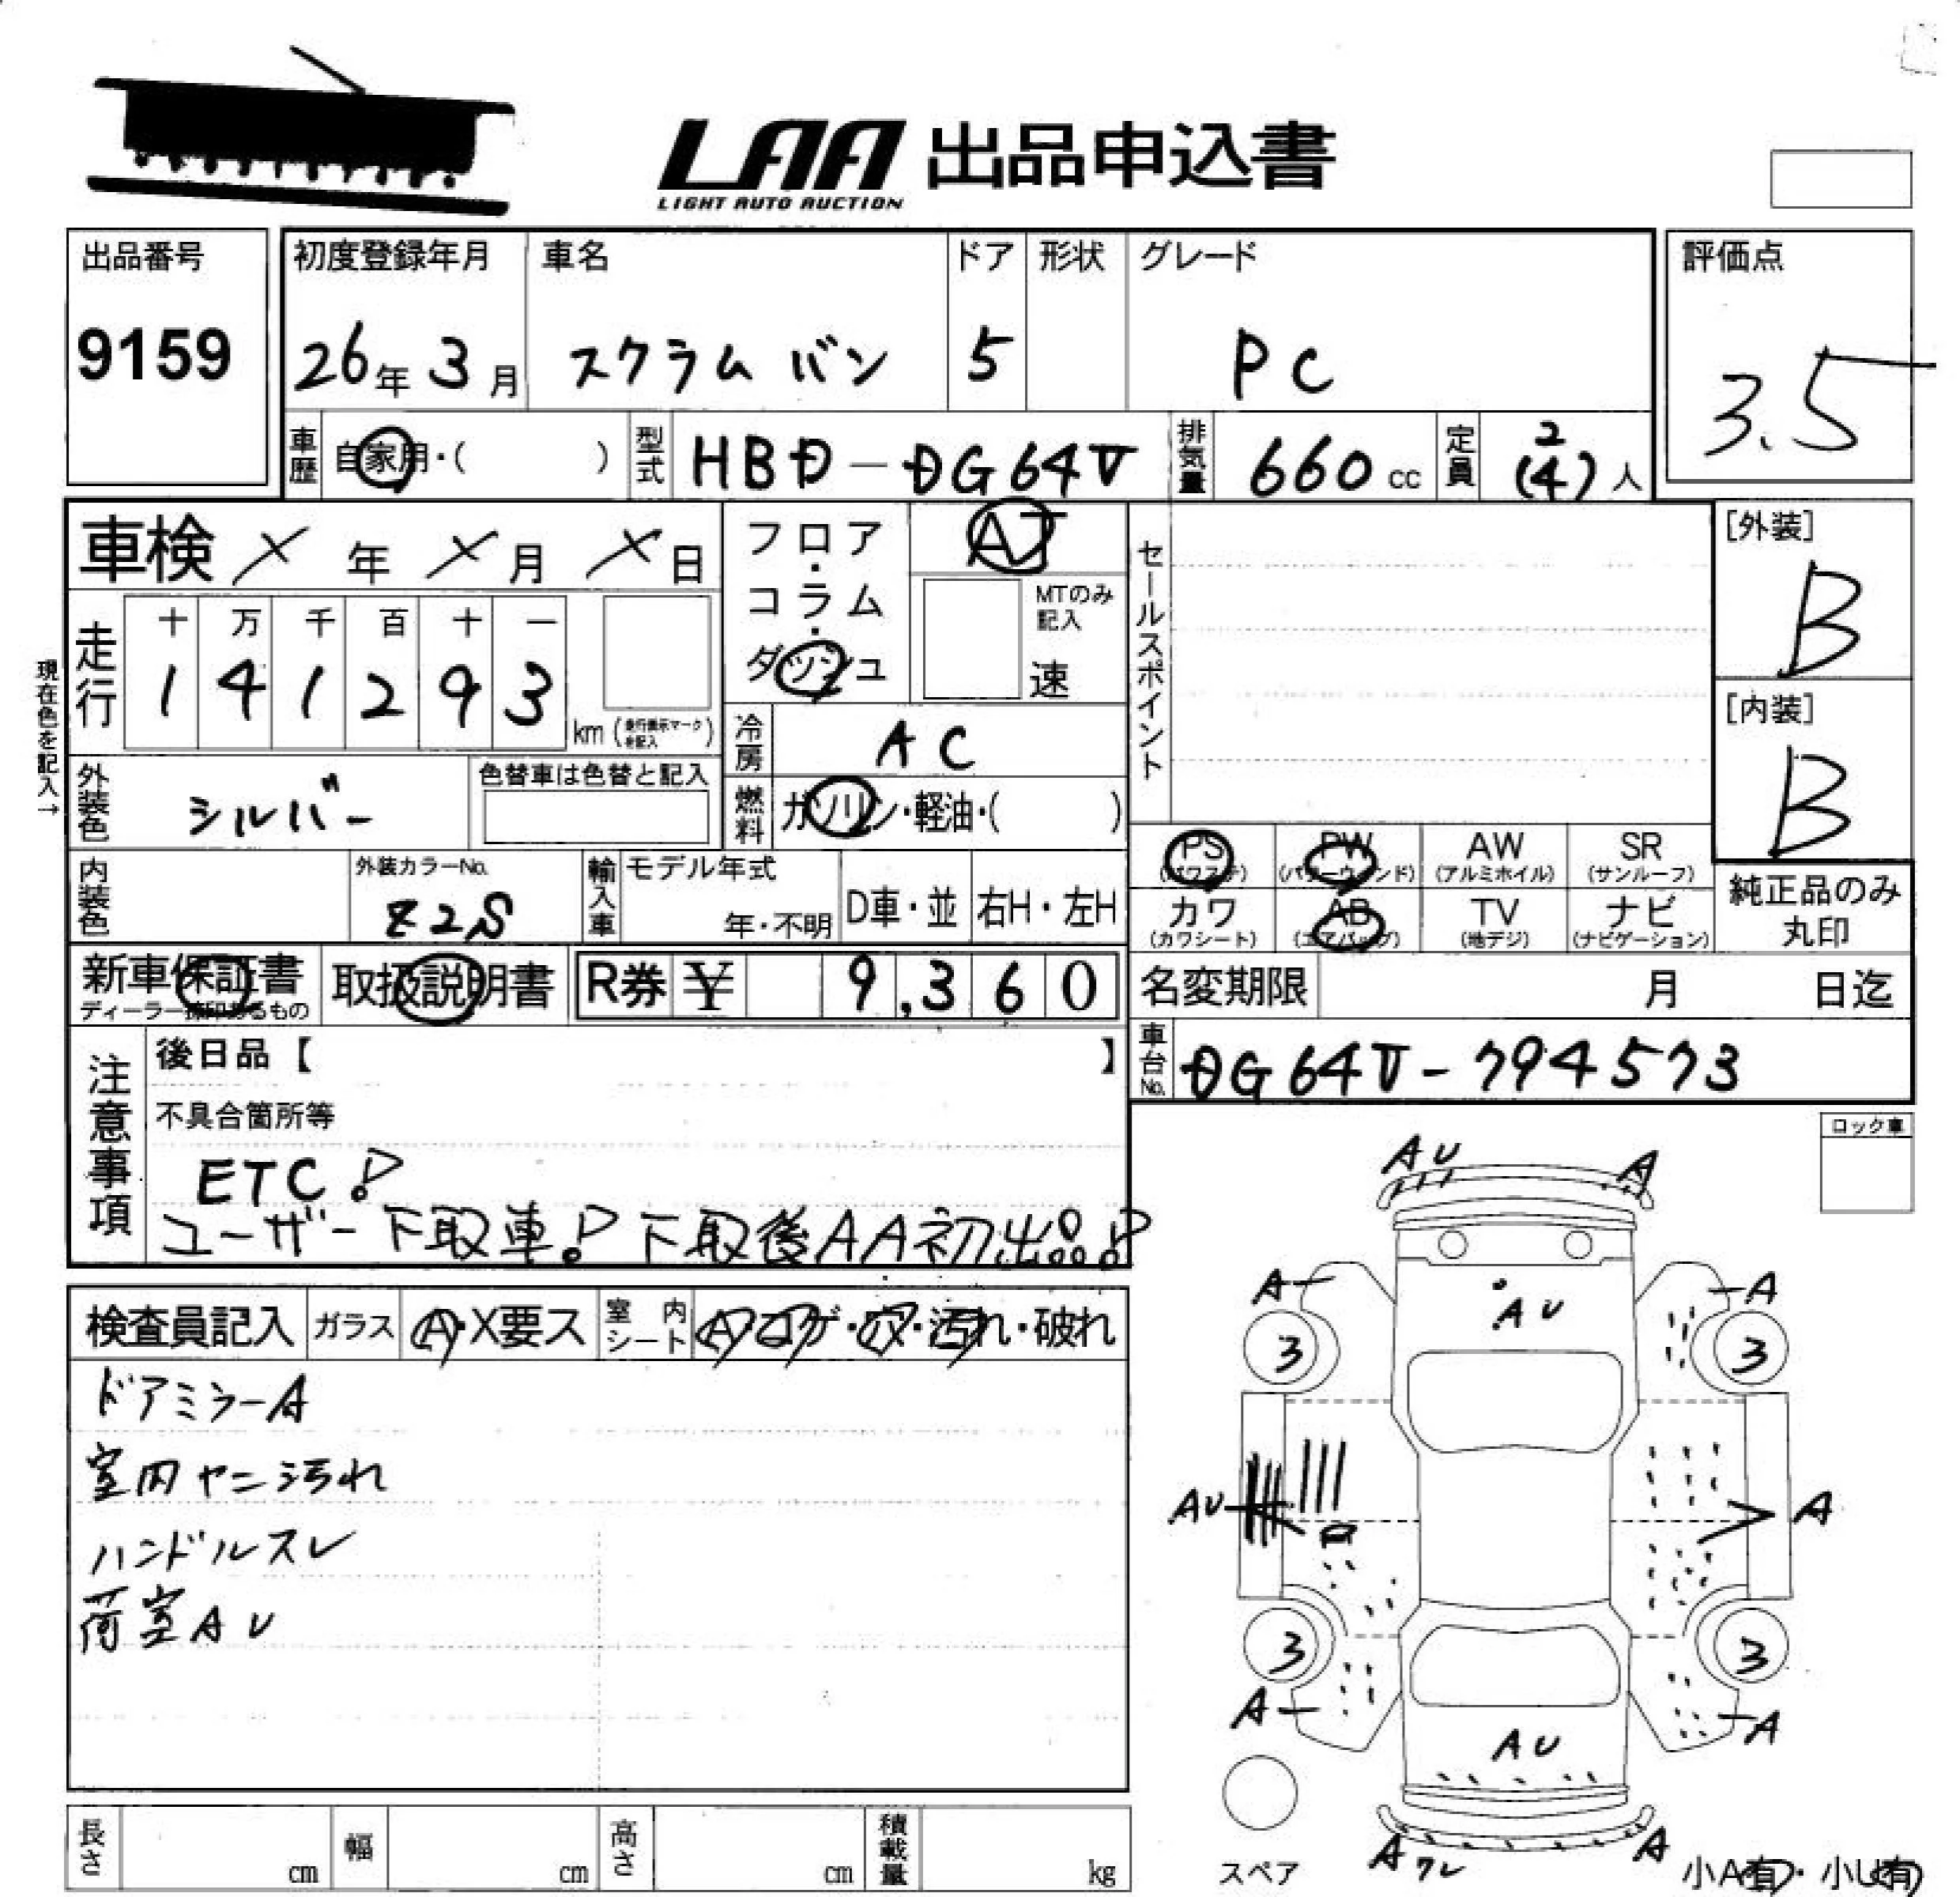 LAA 出品申込書
LIGHT AUTO AUCTION
出品番号
9159
初度登録年月 車名 ドア 形状 グレード
26年 3月 スクラム バン 5 PC
評価点
3.5
車歴 自家用・( ) 型式 HBD-DG64V 排気量 660cc 定員 2 (4)人
車検 × 年 × 月 × 日
フロア・コラム・ダッシュ
AT
MTのみ記入
速
セールスポイント
[外装]
B
[内装]
B
現在色を記入→
走行 十 万 千 百 十 一
1 4 1 2 9 3 km (走行表示マークを記入)
冷房 AC
外装色 シルバー 色替車は色替と記入
燃料 ガソリン・軽油・( )
内装色
外装カラーNo.
Z2S
輸入車 モデル年式 年・不明 D車・並 右H・左H
PS (パワステ) PW (パワーウィンド) AW (アルミホイル) SR (サンルーフ)
カワ (カワシート) AB (エアバッグ) TV (地デジ) ナビ (ナビゲーション)
純正品のみ丸印
新車保証書 取扱説明書 R券 ¥ 9,360
名変期限 月 日迄
車台No. DG64V-794573
注意事項
後日品【 】
不具合箇所等
ETC!
ユーザー下取車! 下取後AA初出品!
ロック車
検査員記入 ガラス A・X要ス 室内シート A・コゲ・穴・汚れ・破れ
ドアミラーA
室内ヤニ汚れ
ハンドルスレ
荷室AU
AU A
A A
AU
3 3
AU A
3 3
A A
AU
Aワレ A
スペア
小A有・小U有
長さ cm 幅 cm 高さ cm 積載量 kg